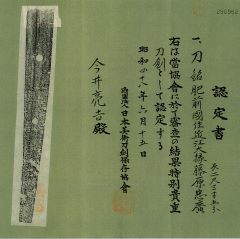 295962
認定書
一、刀 銘 肥前國住近江大掾藤原忠廣
長二尺三寸五分
右は當協會に於て審査の結果特別貴重
刀剣として認定する
昭和四十八年六月十五日
財團法人日本美術刀剣保存協會
今井亮吉殿